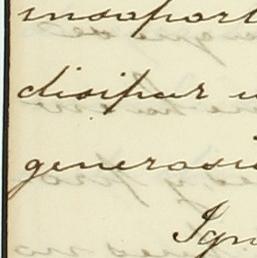 insoport
disipar u
generosi
Ign